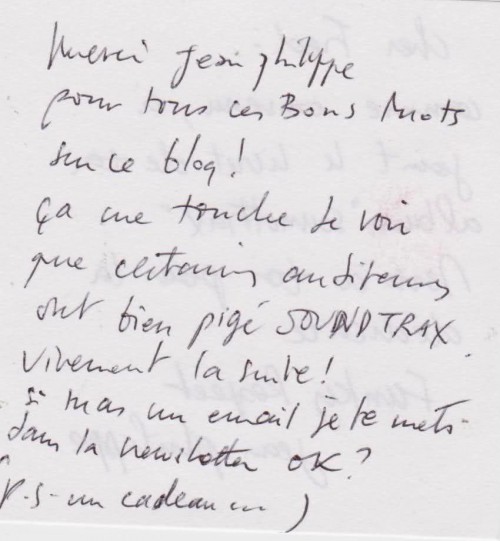 Merci Jean philippe
pour tous ces Bons Mots
sur ce blog!
ça me touche de voir
que certains auditeurs
ont bien pigé SOUNDTRAX.
vivement la suite!
si mas un email je te mets
dans la newsletter OK?
(P.S - un cadeau )